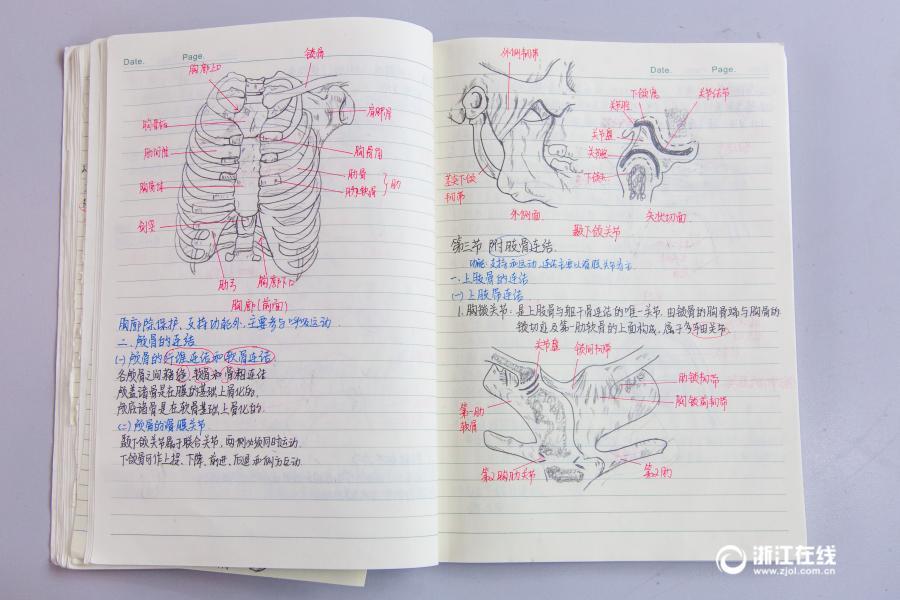 Date.
Page.
胸廓上口
锁骨
肩胛骨
胸骨柄
胸骨角
肋间隙
肋骨
肋软骨
肋
胸骨体
剑突
肋弓
胸廓下口
胸廓(前面)
胸廓除保护、支持功能外,主要参与呼吸运动.
二、颅骨的连结
(一)颅骨的纤维连结和软骨连结.
各颅骨之间借缝、软骨和骨相连结
颅盖诸骨是在膜的基础上骨化的.
颅底诸骨是在软骨基础上骨化的.
(二)颅骨的滑膜关节.
颞下颌关节属于联合关节,两侧必须同时运动.
下颌骨可作上提、下降、前进、后退和侧方运动.
Date.
Page.
外侧韧带
下颌窝
关节结节
关节腔
关节盘
关节腔
下颌头
茎突下颌
韧带
外侧面
矢状切面
颞下颌关节
第三节 附肢骨连结.
功能:支持和运动,连结主要以滑膜关节为主
一、上肢骨的连结
(一)上肢带连结
1.胸锁关节:是上肢骨与躯干骨连结的唯一关节.由锁骨的胸骨端与胸骨的
锁切迹及第一肋软骨的上面构成,属于多轴关节.
关节盘
锁间韧带
肋锁韧带
胸锁前韧带
第一肋
软骨
第2胸肋关节
第2肋
浙江在线
www.zjol.com.cn